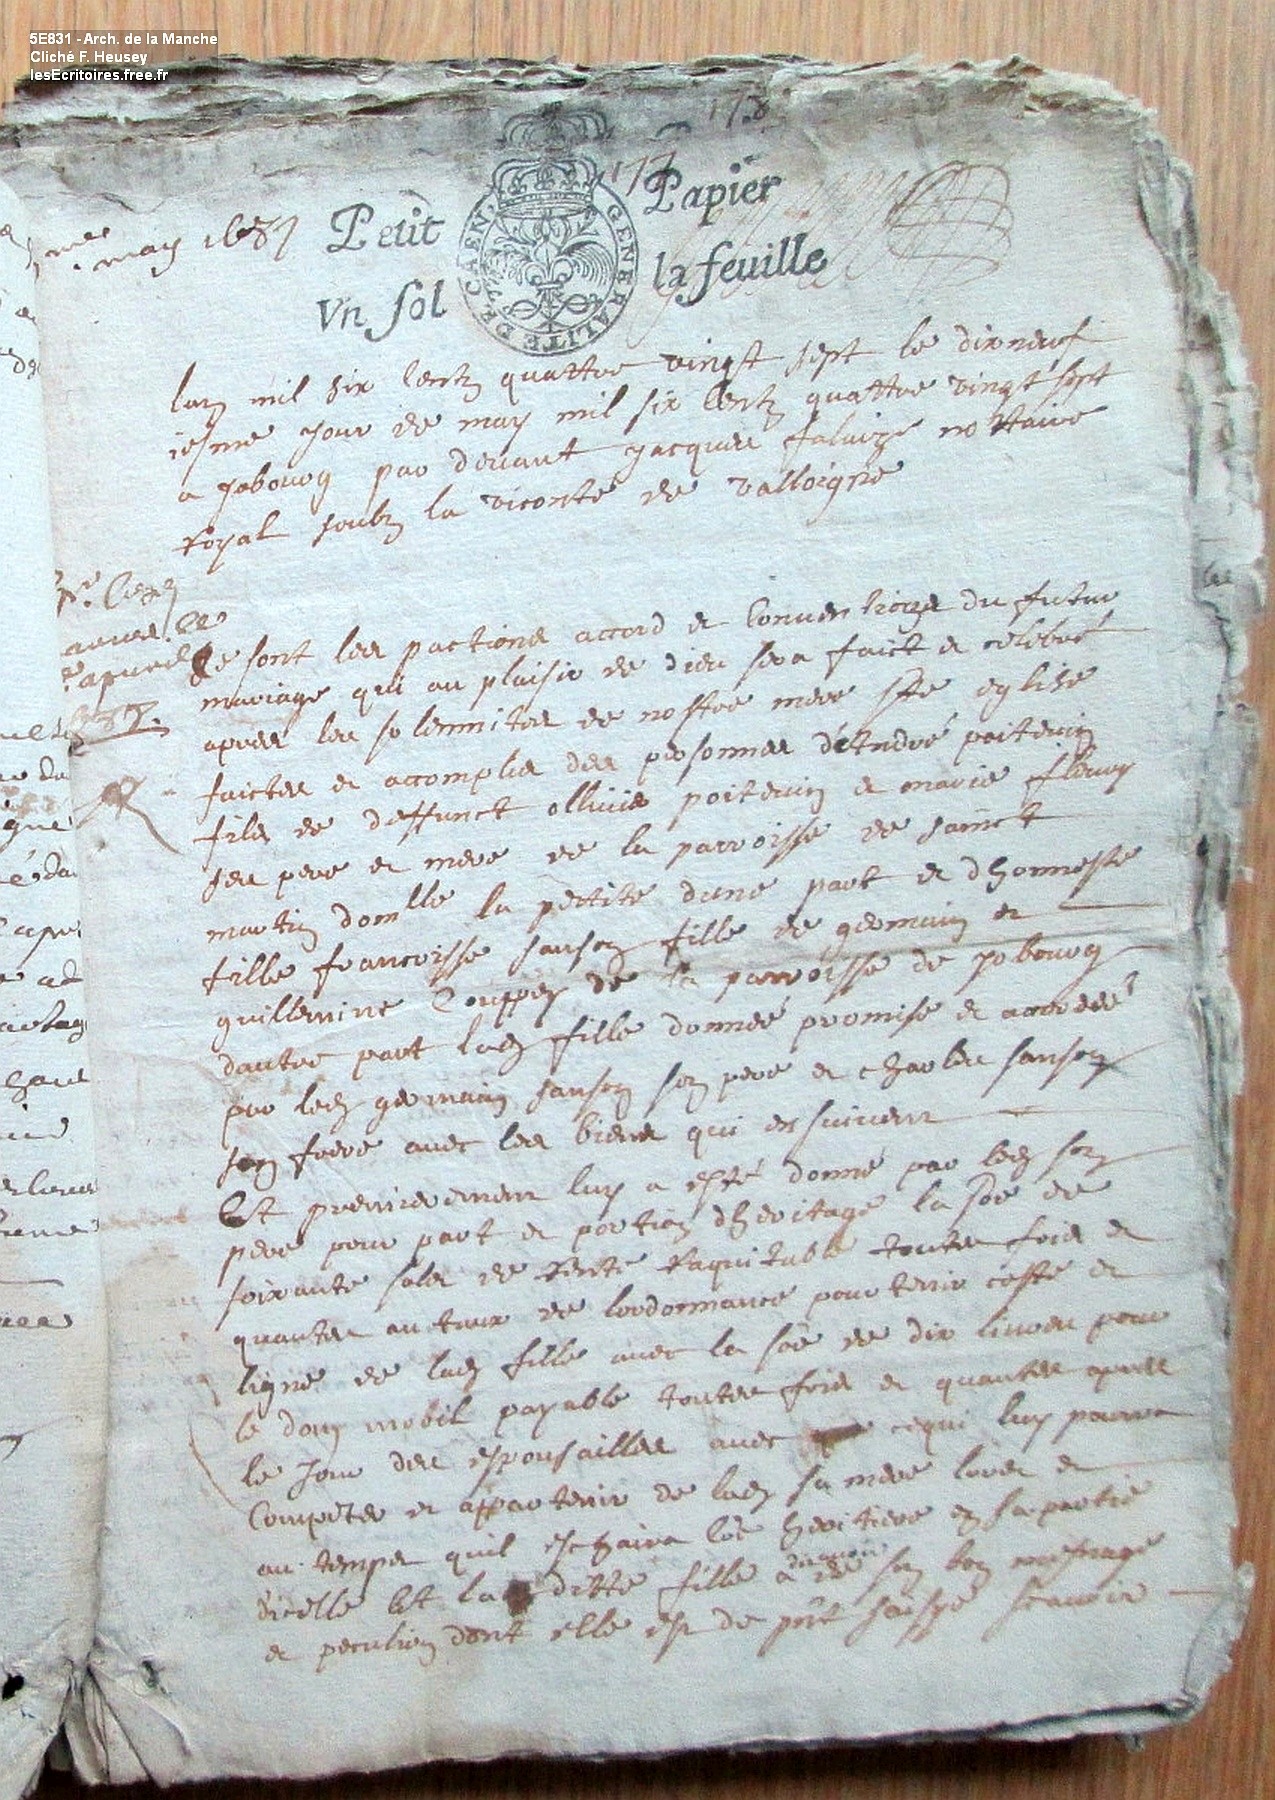 5E831 - Arch. de la Manche
Cliché F. Heusey
lesEcritoires.free.fr
178
177
may 1687
Petit Papier
Vn sol la feuille
GENERALITE DE CAEN
Lan mil six centz quattre vingt sept le dixneuf
iesme jour de may mil six centz quattre vingt sept
a Jobourg par devant Jacques Falaize nottaire
royal soubz la viconte de valloigne
Ce sont les pactions accord et conventions du futur
mariage qui au plaisir de dieu sera faict et celebré
apres les solennites de nostre mere Ste eglise
faictes et accomplies des personnes d'André poitevin
fils de deffunct ollivier poitevin et marie fleury
ses pere et mere de la parroisse de sainct
martin donville la pettite dune part et dhonneste
fille francoisse sanson fille de germain et
guillemine Couppey de la parroisse de Jobourg
dautre part lad fille donnée promise et accordée
par led germain sanson son pere et charles sanson
son frere avec les biens qui ensuivent
Et premierement luy a esté donné par led son
pere pour part et portion dheritage la soe de
soixante sols de rente raquitable toutes fois et
quantes au taux de lordonnance pour tenir coste et
ligne de lad fille avec la soe de dix livres pour
le don mobil payable toutes fois et quantes apres
le jour des espousailles avec ce qui luy pourra
Compter et appartenir de lad sa mere lores et
au temps quil eschaira coe heritiere en sa partie
dicelle Et la ditte fille a de son bon mesnage
et peculien dont elle est de pnt saisye scavoir